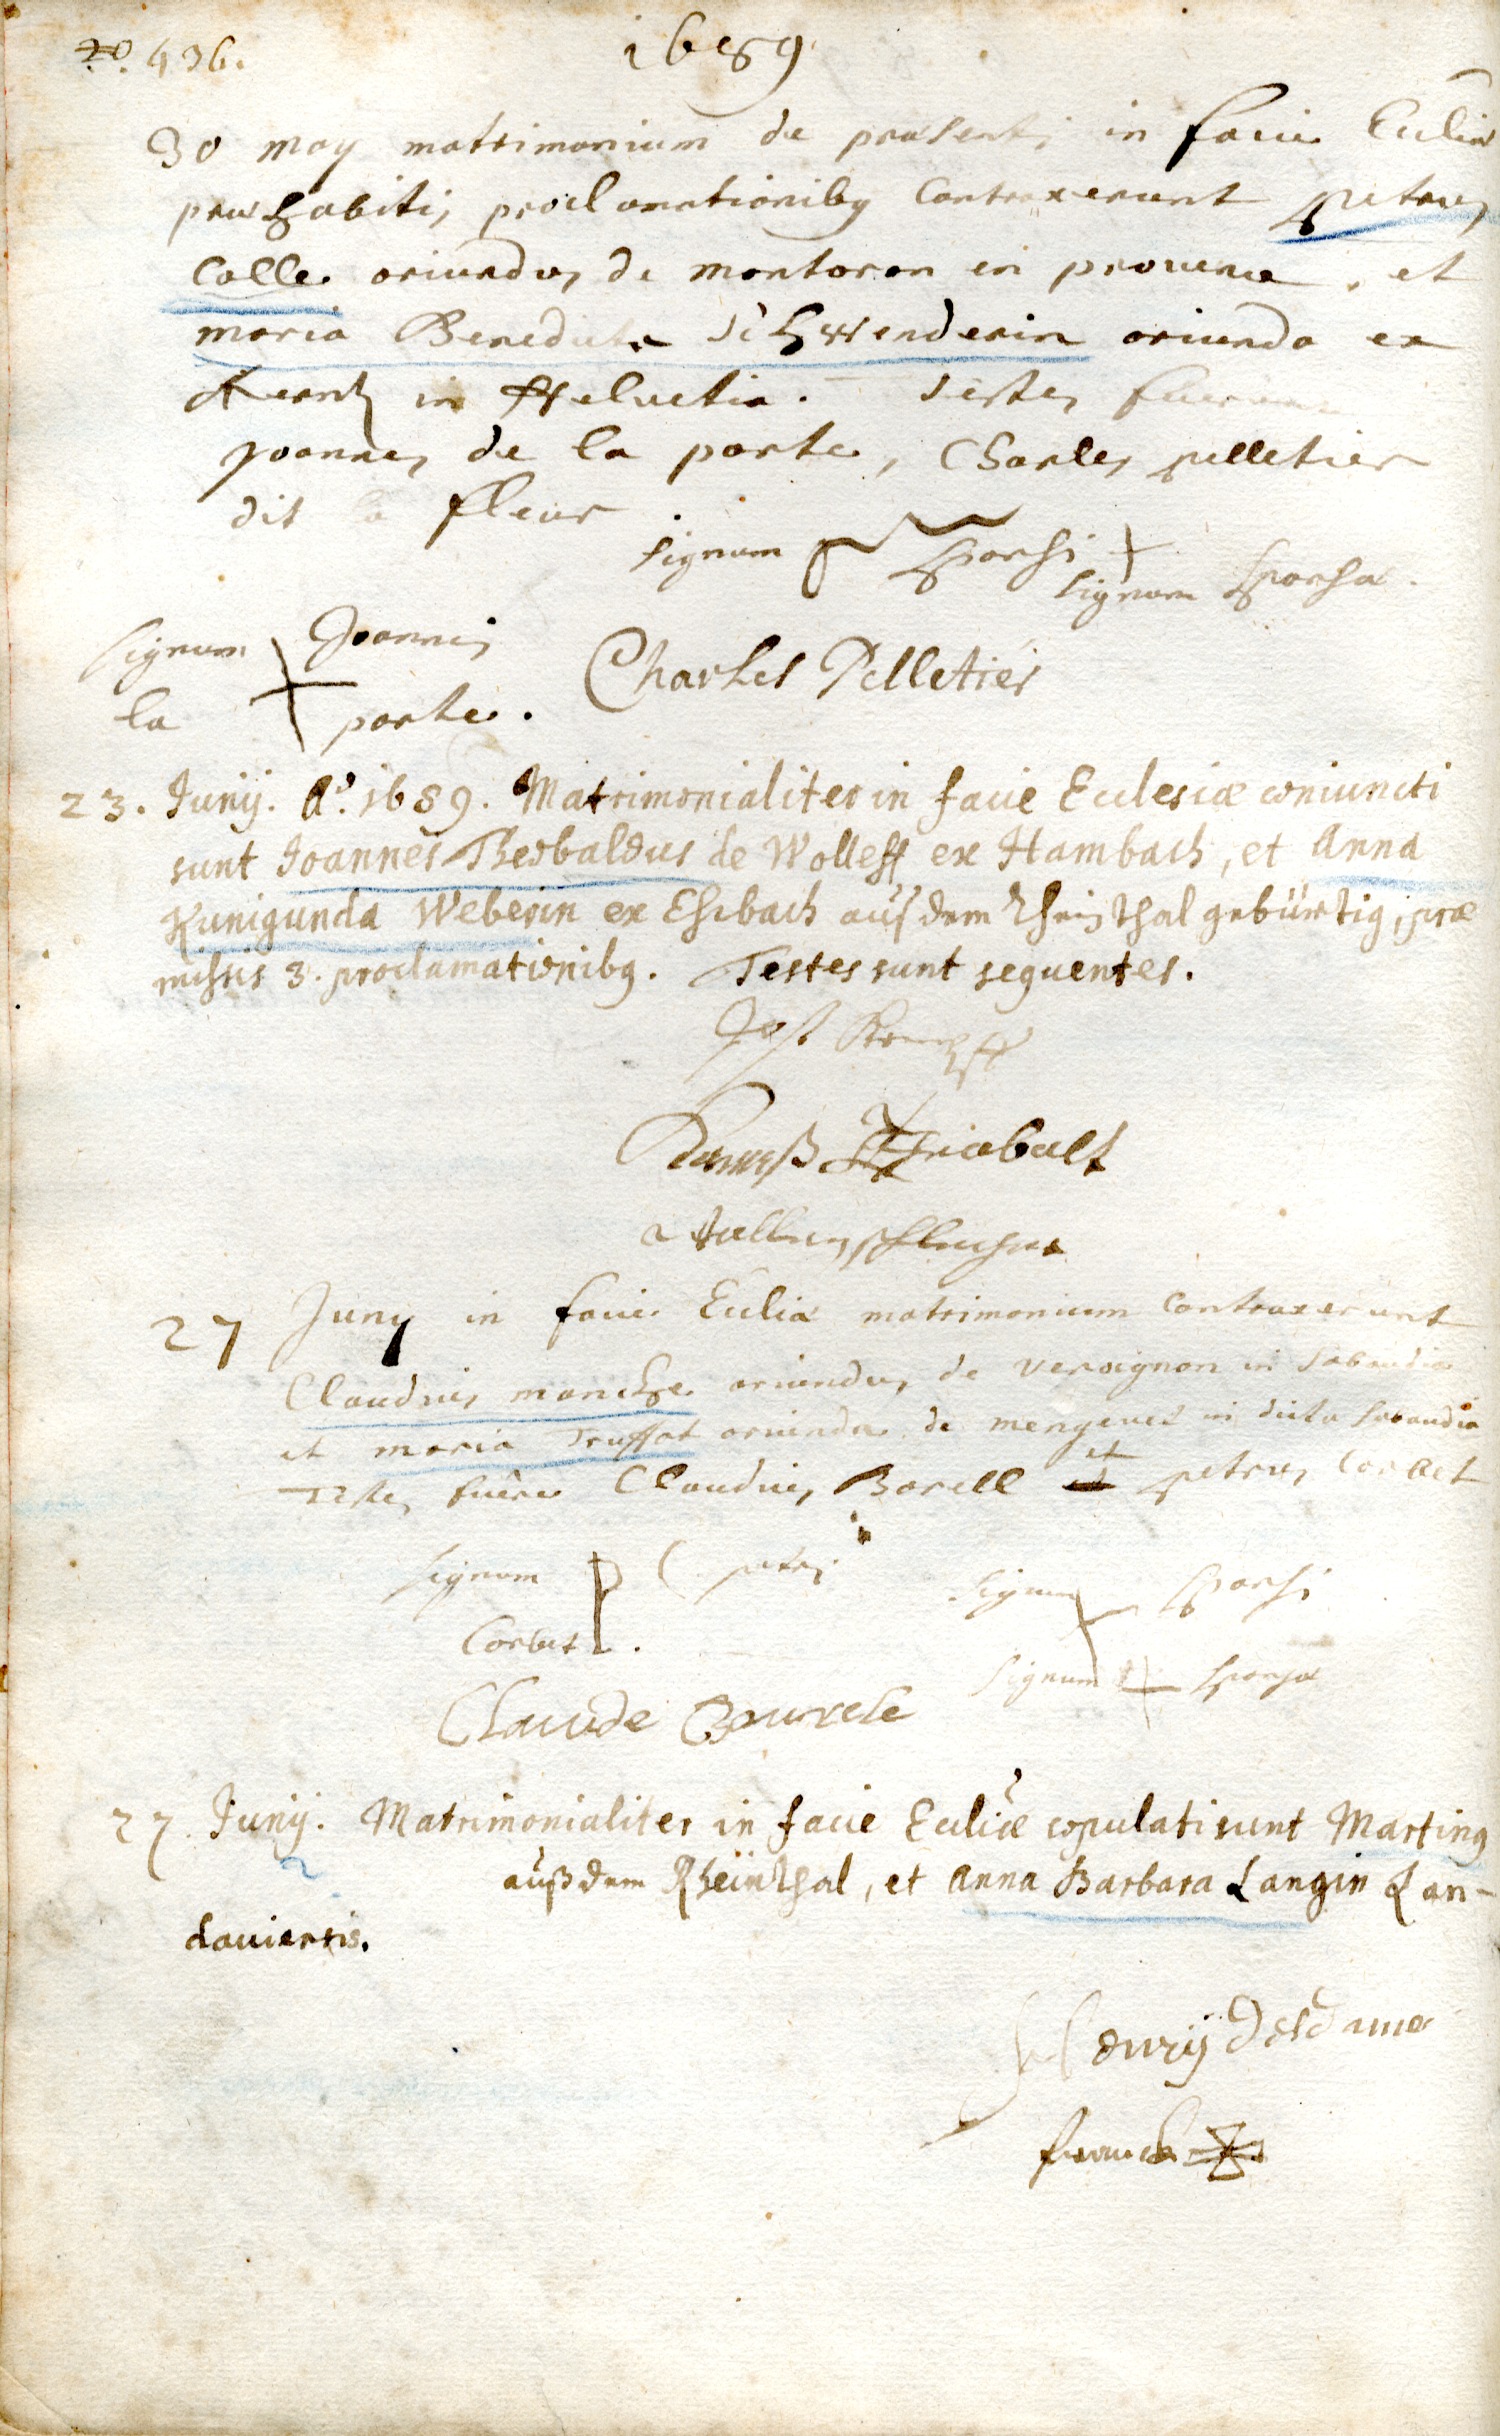 436.
1689
30 may matrimonium de praesenti in facie Eccliae
praehabitis proclamationibq contraxerunt petrus
Colle oriundus de montoron en provence, et
maria Benedicta Schwenderin oriunda ex
in Helvetia. Testes fuerunt
Joannes de la porte, Charles pelletier
dit la fleur
signum sponsi
signum sponsae.
signum Joannis
la porte.
Charles Pelletier
23. Junij. Ao. 1689. Matrimonialiter in facie Ecclesiae coniuncti
sunt Joannes Theobaldus de Wolleff ex Hambach, et Anna
Kunigunda Weberin ex Eschbach auß dem gebürtig, prae
missis 3. proclamationibq. Testes sunt sequentes.
Jost
27 Juny in facie Eccliae matrimonium contraxerunt
Claudius manche oriundus de veroignon in Sabaudia
et maria Truffat oriunda de mengevet in dicta Sabaudia
Testes fuere Claudius Borell et petrus Corbet
signum petri
Corbet.
signum sponsi
signum sponsae
Claude Bourele
27. Junij. Matrimonialiter in facie Eccliae copulati sunt Martinq
auß dem Rheinthal, et Anna Barbara Langin Lan-
daviensis.
Henrij
franck